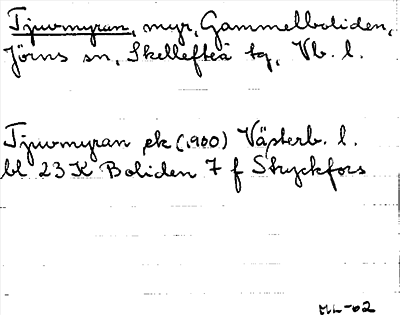 Tjuvmyran, myr, Gammelboliden,
Jörns sn, Skellefteå tg, Vb. l.
Tjuvmyran ek (1900) Västerb. l.
bl 23 K Boliden 7 f Stryckfors
ML-02